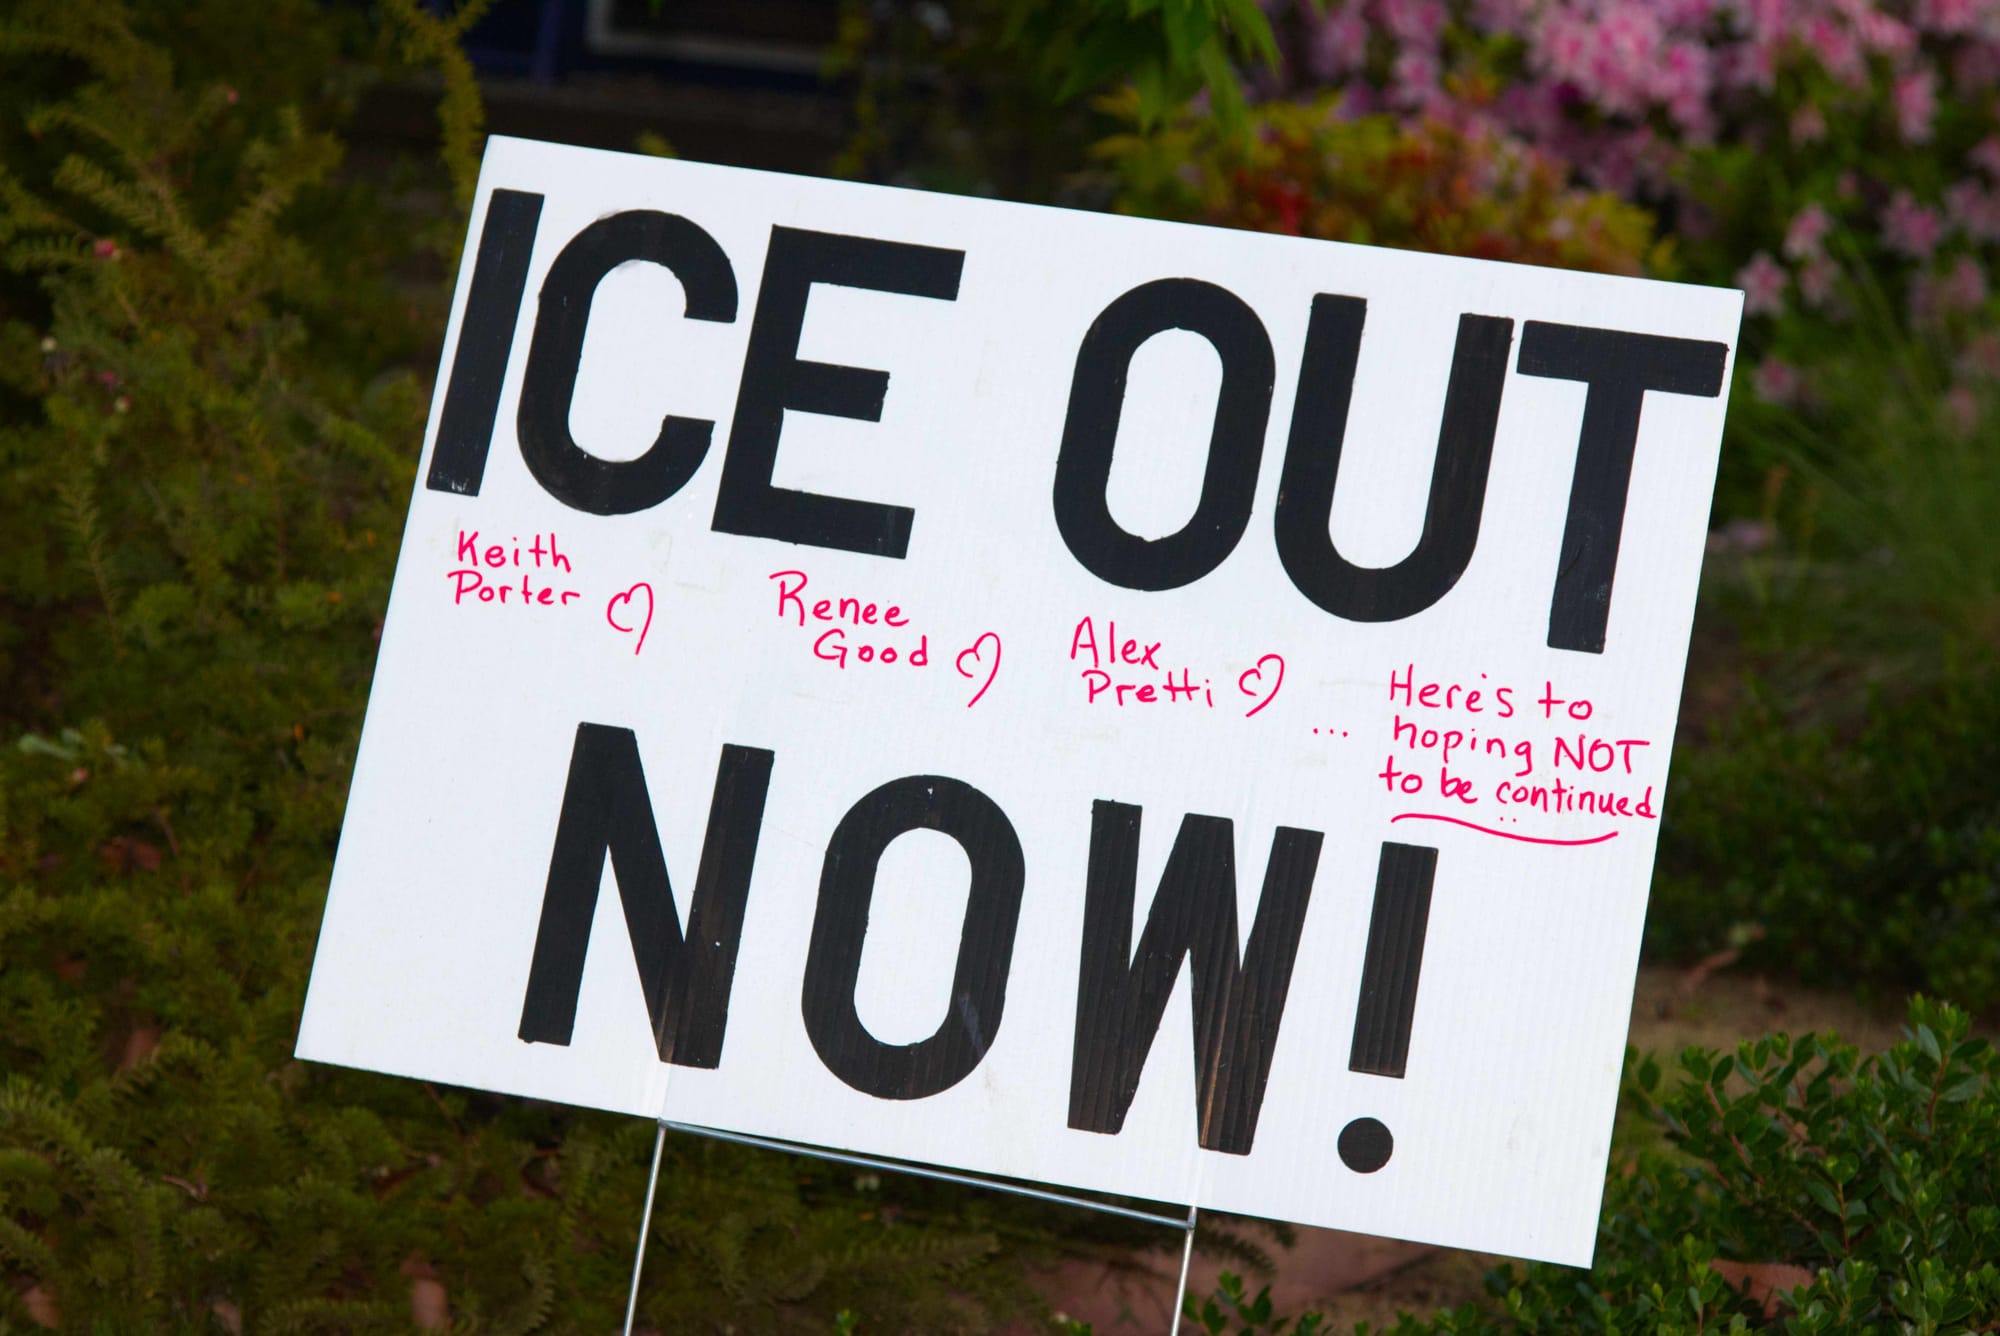 ICE OUT
Keith
Porter
Renee
Good
Alex
Pretti
... Here's to
hoping NOT
to be continued
NOW!